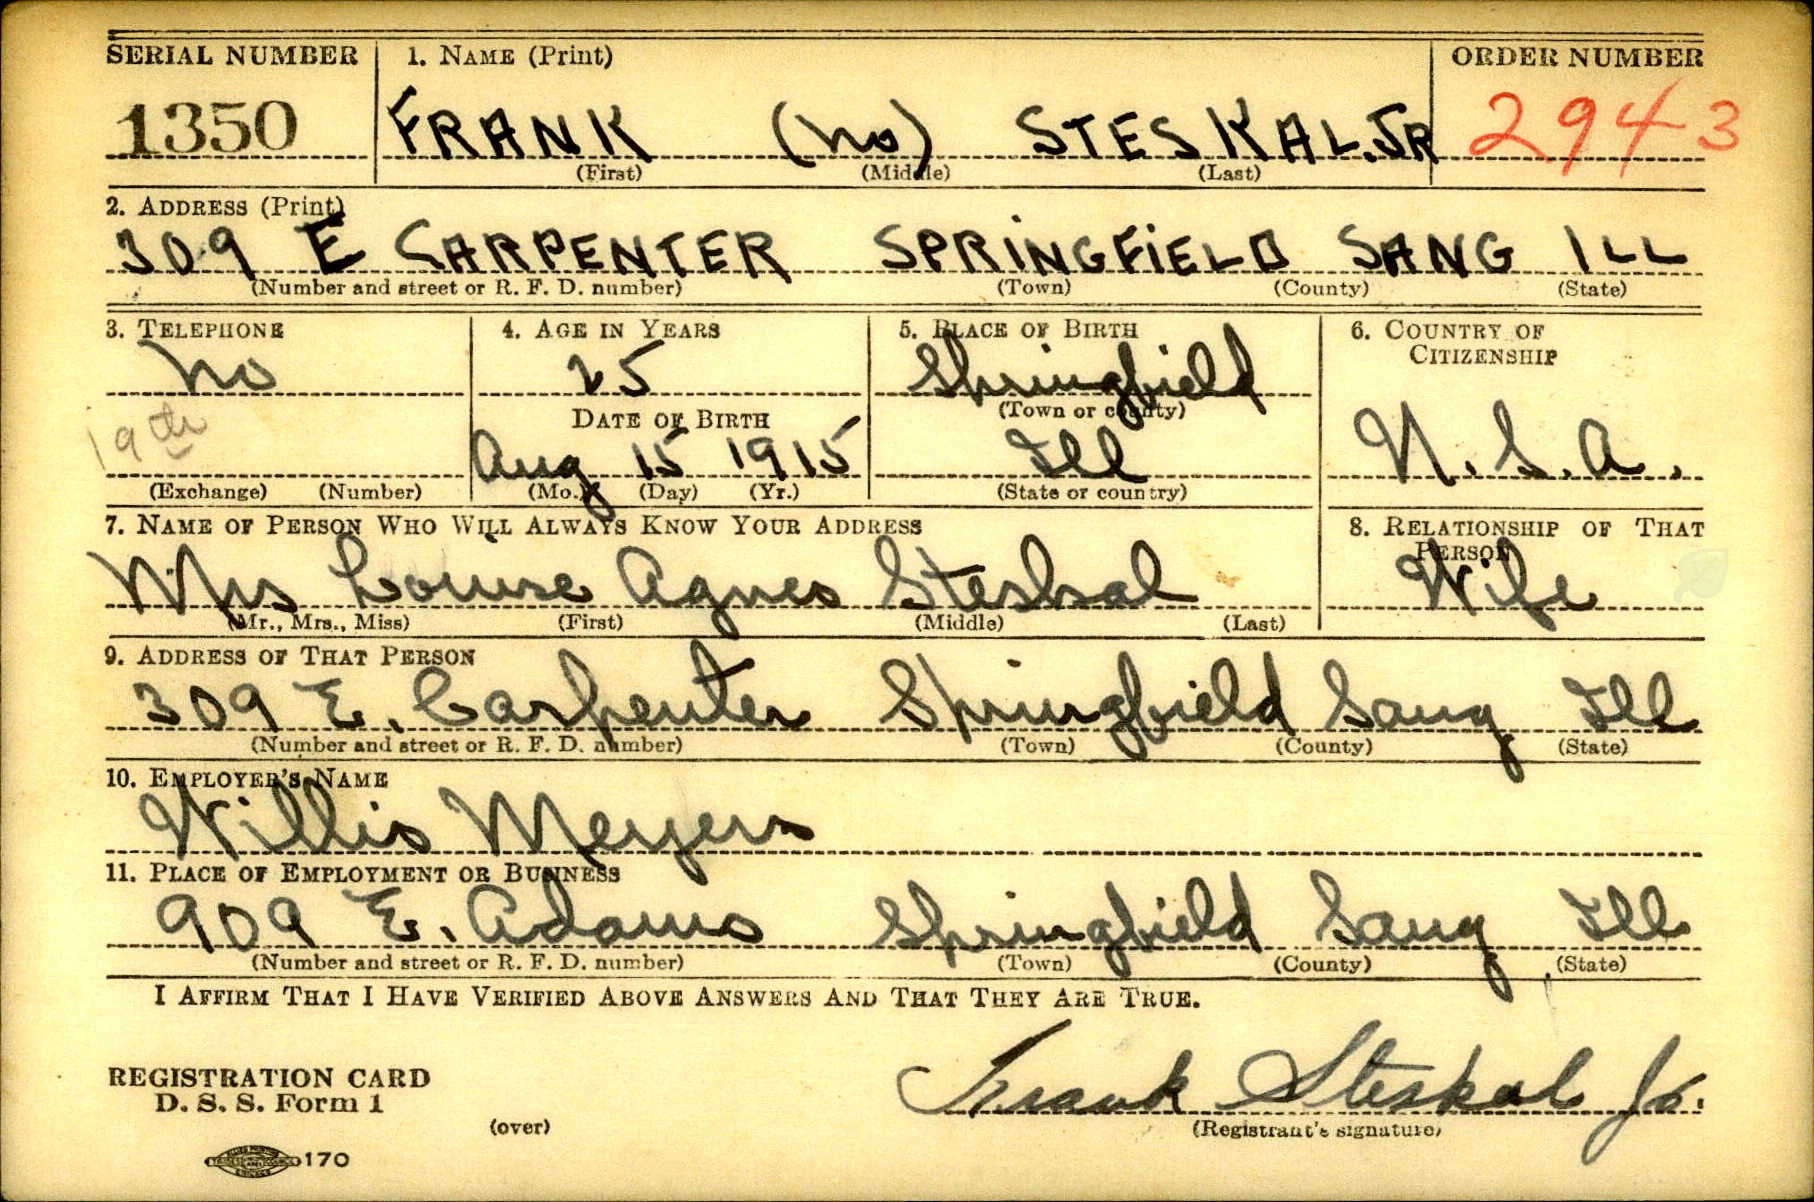 SERIAL NUMBER 1. NAME (Print) ORDER NUMBER
1350 FRANK (no) STESKAL.JR 2943
(First) (Middle) (Last)
2. ADDRESS (Print)
309 E CARPENTER SPRINGFIELD SANG ILL
(Number and street or R. F. D. number) (Town) (County) (State)
3. TELEPHONE 4. AGE IN YEARS 5. PLACE OF BIRTH 6. COUNTRY OF CITIZENSHIP
no 25 Springfield
DATE OF BIRTH (Town or county)
19th Aug 15 1915 Ill U.S.A.
(Exchange) (Number) (Mo.) (Day) (Yr.) (State or country)
7. NAME OF PERSON WHO WILL ALWAYS KNOW YOUR ADDRESS 8. RELATIONSHIP OF THAT PERSON
Mrs Louise Agnes Steskal Wife
(Mr., Mrs., Miss) (First) (Middle) (Last)
9. ADDRESS OF THAT PERSON
309 E. Carpenter Springfield Sang Ill
(Number and street or R. F. D. number) (Town) (County) (State)
10. EMPLOYER'S NAME
Willis Meyers
11. PLACE OF EMPLOYMENT OR BUSINESS
909 E. Adams Springfield Sang Ill
(Number and street or R. F. D. number) (Town) (County) (State)
I AFFIRM THAT I HAVE VERIFIED ABOVE ANSWERS AND THAT THEY ARE TRUE.
REGISTRATION CARD
D. S. S. Form 1
Frank Steskal Jr.
(over) (Registrant's signature)
170